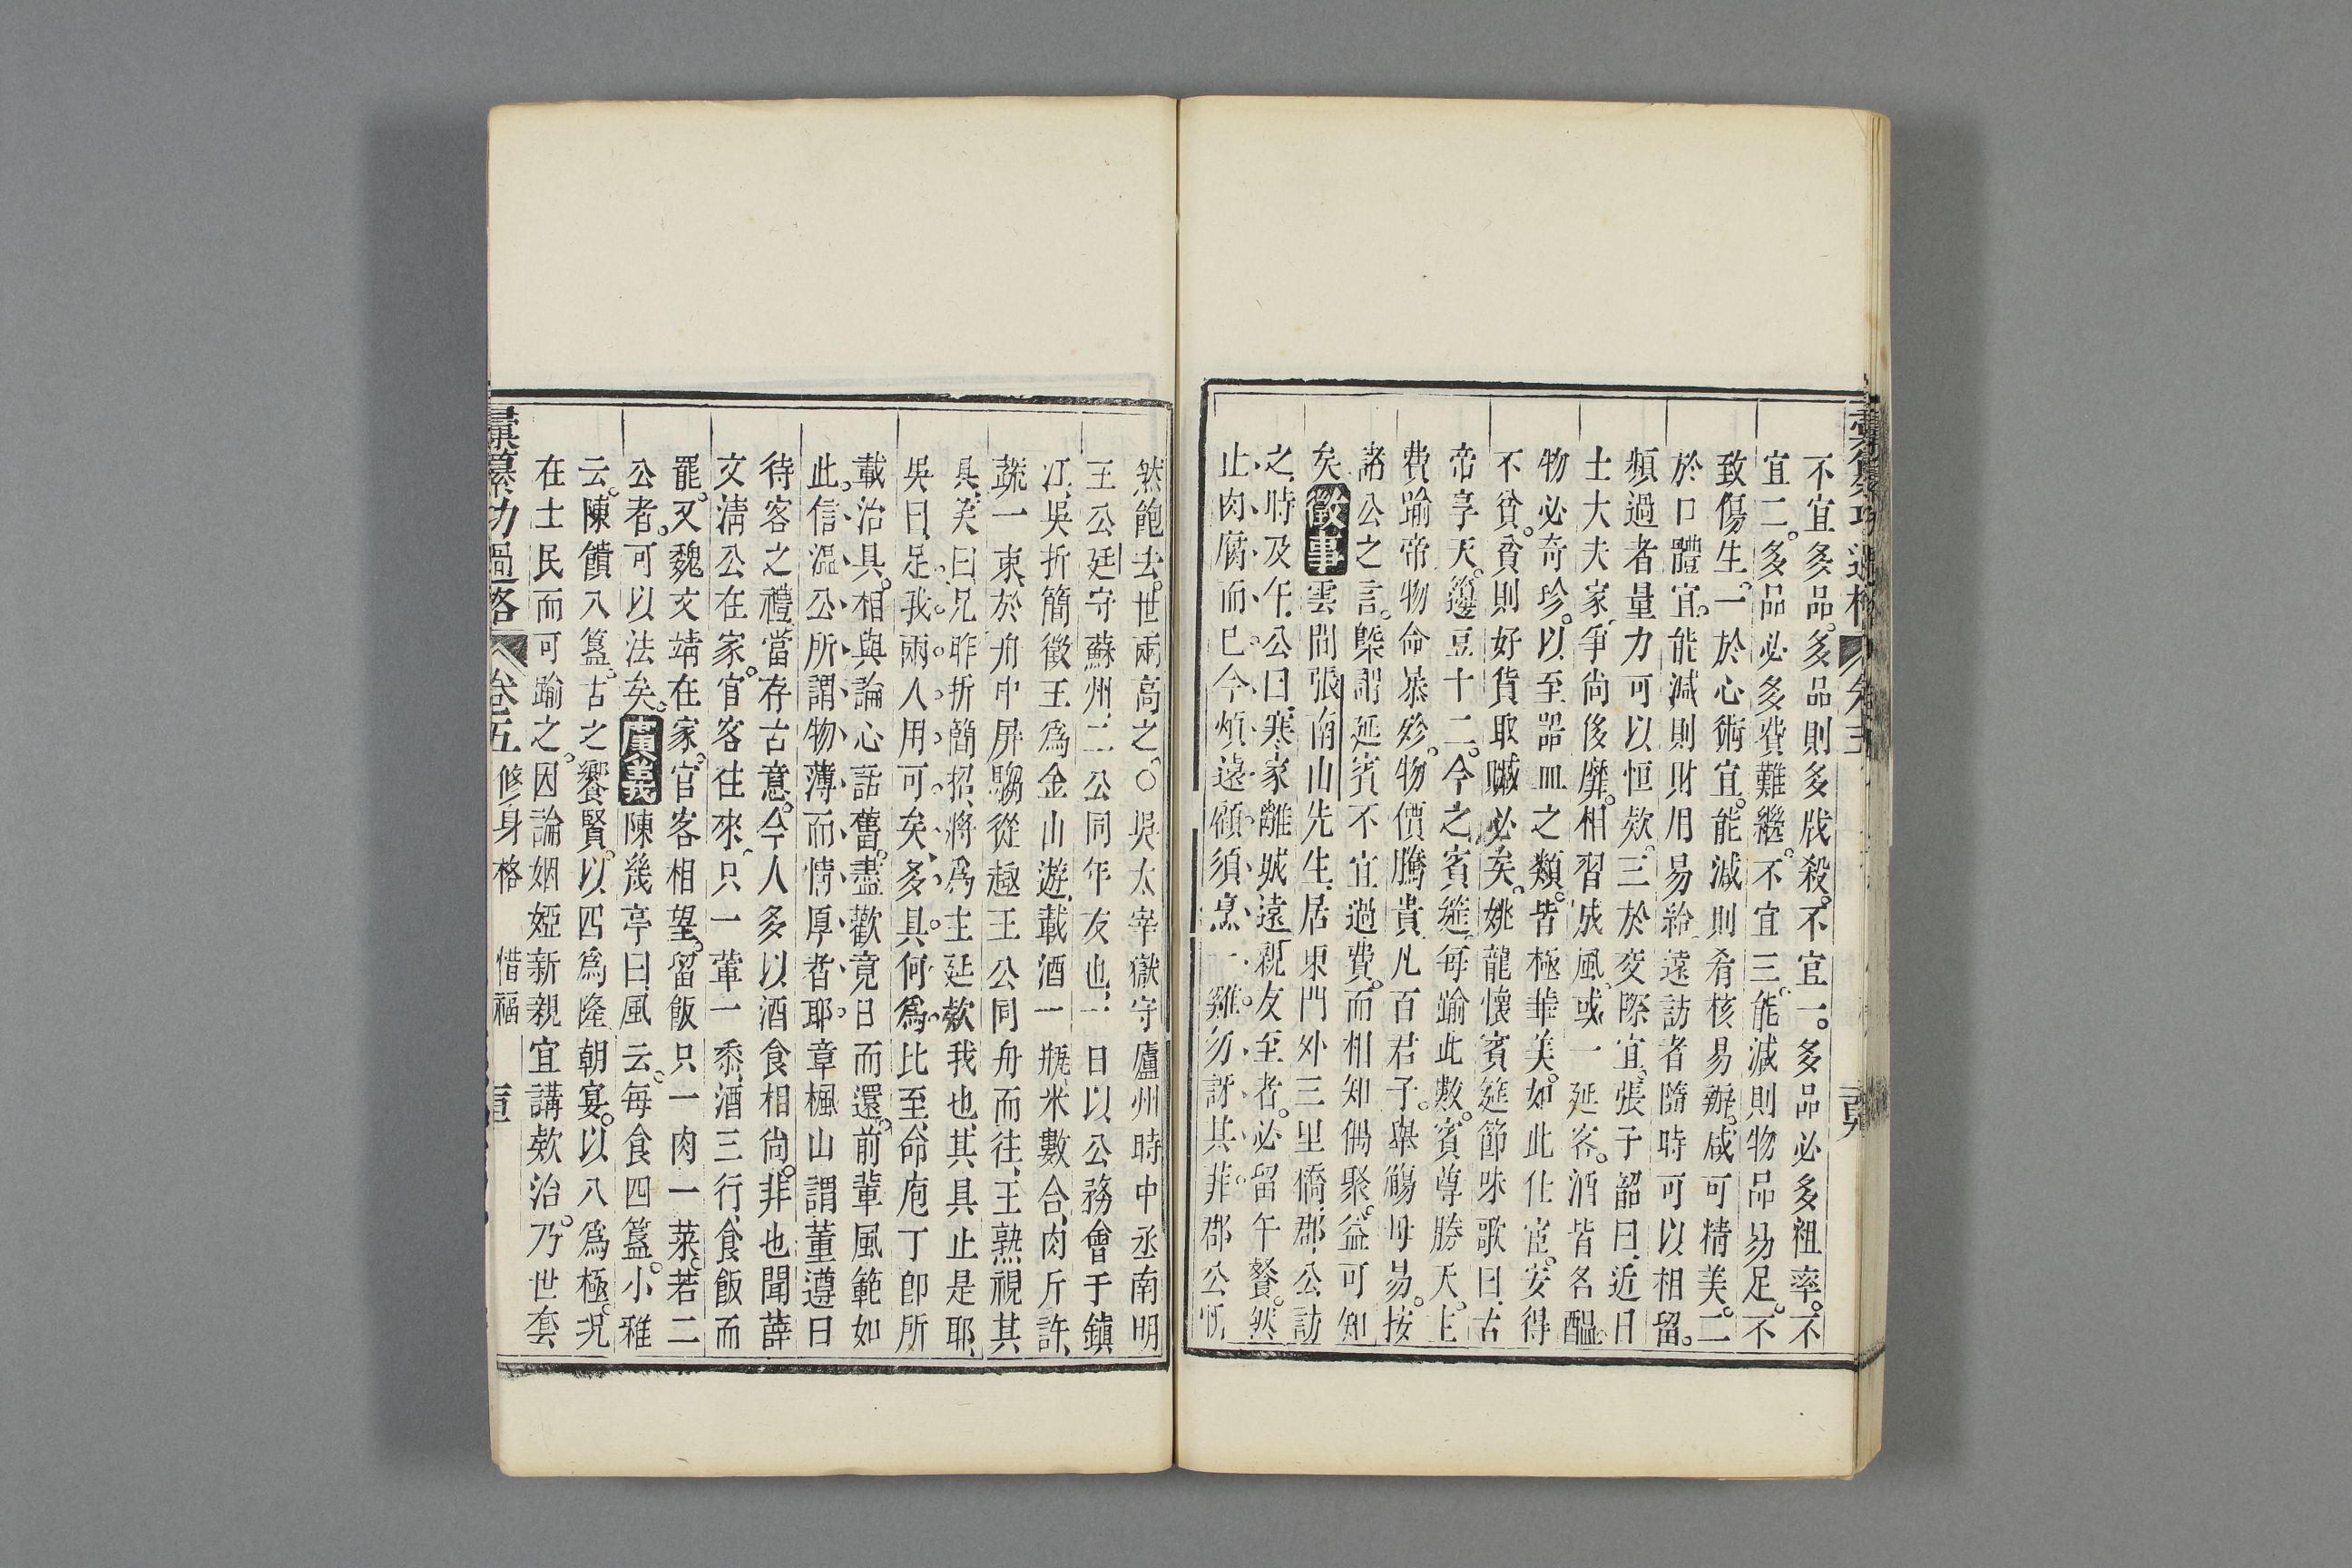 不宜多品。多品則多戕殺。不宜一。多品必多粗率。不
宜二。多品必多費難繼。不宜三。能減則物品易足。不
致傷生。一於心術宜。能減則肴核易辦。咸可精美。二
於口體宜。能減則財用易給。遠訪者隨時可以相留。
頻過者量力可以恒欵。三於交際宜。張子韶曰、近日
士大夫家、爭尚後靡。相習成風。或一延客。酒皆名醞。
物必奇珍。以至器皿之類。皆極華美。如此仕宦。安得
不貧。貧則好貨取贓必矣。姚龍懷賓筵節味歌曰、古
帝享天。籩豆十二。今之賓筵。每踰此數。賓尊勝天。上
費踰帝物命暴殄。物價騰貴。凡百君子。舉觴毋易。按
諸公之言。槩謂延賓不宜過費。而相知偶聚。益可知
矣徵事雲間張南山先生、居東門外三里僑、郡公訪
之、時及午、公曰、寒家離城遠、親友至者。必留午餐。然
止肉腐而已今煩遠顧須烹一雞。勿訝其菲。郡公忻
然飽去。世兩高之。○吳太宰嶽守廬州時中丞南明
王公廷守蘇州、二公同年友也、一日以公務會于鎮
江、吳折簡徵王爲金山遊、載酒一瓶、米數合、肉斤許、
蔬一束、於舟中屏騶從趣王公同舟而往、王熟視其
具、笑曰、兄昨折簡招、將爲主延欵我也、其具止是耶、
吳曰、足我兩人用可矣、多具何爲。比至、命庖丁卽所
載治具。相與論心話舊。盡歡竟日而還。前輩風範如
此。信溫公所謂物薄而情厚者耶。章楓山謂董遵曰
待客之禮、當存古意。今人多以酒食相尚。非也聞薛
文淸公在家。官客往來、只一葷一黍、酒三行、食飯而
罷。又魏文靖在家。官客相望。留飯只一肉一菜。若二
公者。可以法矣。廣義陳幾亭曰、風云。每食四簋。小雅
云。陳饋八簋。古之饗賢。以四爲隆、朝宴。以八爲極。況
在士民而可踰之。因論姻婭新親宜講欵治。乃世套
彙纂功過格 卷五 修身格 惜福